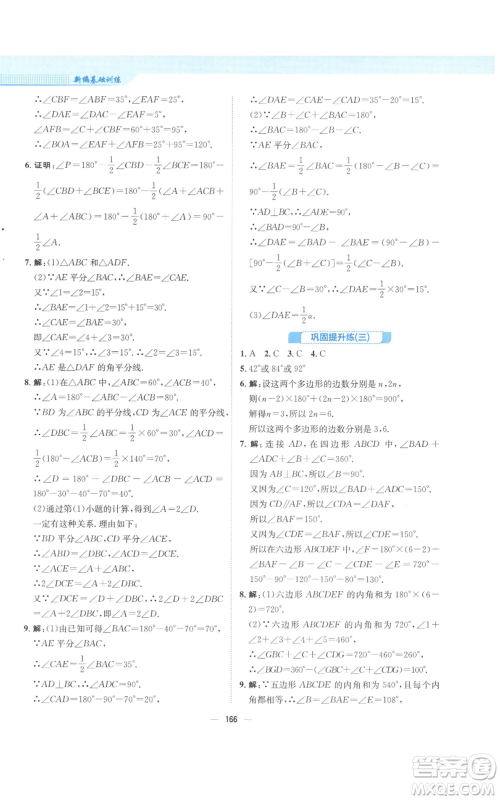 新编基础训练
∴∠CBF=∠ABF=35°,∠EAF=25°.
∴∠DAE=∠DAF+∠EAF=55°,
∠AFB=∠C+∠CBF=60°+35°=95°.
6. 证明:∠P=180°-1/2∠CBD-1/2∠BCE=180°-
1/2(∠CBD+∠BCE)=180°-1/2(∠A+∠ACB+
∠A+∠ABC)=180°-1/2(∠A+180°)=90°-
1/2∠A.
7. 解:(1)△ABC和△ADF.
(2)∵AE平分∠BAC,∴∠BAE=∠CAE.
又∵∠1=∠2=15°,
∴∠BAE=∠1+∠2=15°+15°=30°.
∴∠CAE=∠BAE=30°,
即∠CAE=∠4+∠3=30°.
又∵∠4=15°,∴∠3=15°.
∴∠2=∠3=15°.
∴AE是△DAF的角平分线.
8. 解:(1)∵∠A+∠ABC=∠ACE,∠A=80°,∠ABC=60°,
∴∠ACE=140°.
∵BD为∠ABC的平分线,CD为∠ACE的平分线,
∴∠DBC=1/2∠ABC=1/2×60°=30°,∠ACD=
1/2∠ACE=1/2×140°=70°.
∴∠D=180°-∠DBC-∠ACB-∠ACD=
180°-30°-40°-70°=40°.
(2)通过第(1)小题的计算,得到∠A=2∠D.
一定有这种关系,理由如下:
∵BD平分∠ABC,CD平分∠ACE,
∴∠ABC=2∠DBC,∠ACE=2∠DCE.
∵∠A+∠ABC=∠ACE,
∴∠A+2∠DBC=2∠DCE.
又∵∠DCE=∠DBC+∠D,
∴2∠DCE=2∠DBC+2∠D.
∴∠A=2∠D.
9. 解:(1)由已知可得∠BAC=180°-60°-30°=90°.
∵AE平分∠BAC,
∴∠CAE=1/2∠BAC=45°.
∵AD⊥BC,∴∠ADC=90°.
∴∠CAD=180°-90°-30°=60°.
∴∠DAE=∠CAD-∠CAE=60°-45°=15°.
(2)∵∠BAC=180°-∠B-∠C=180°-(∠B+∠C),
∵AE平分∠BAC,
∴∠BAE=1/2∠BAC=1/2[180°-(∠B+∠C)]=
90°-1/2(∠B+∠C).
∵AD⊥BC,∴∠ADB=90°.
∴∠BAD=90°-∠B.
∴∠DAE=∠BAE-∠BAD=
[90°-1/2(∠B+∠C)]-(90°-∠B)=1/2(∠B-∠C).
又∵∠B-∠C=30°,
∴∠DAE=1/2×30°=15°.
(3)∠DAE=1/2α.
巩固提升练(三)
1. A 2. C 3. C 4. C
5. 42°或84°或92°
6. 解:设这两个多边形的边数分别是n,2n,
则(n-2)×180°+(2n-2)×180°=900°.
解得n=3.
所以这两个多边形的边数分别是3,6.
7. 解:连接AD,在四边形ABCD中,∠BAD+
∠ADC+∠B+∠C=360°.
因为AB⊥BC,所以∠B=90°.
又因为∠C=120°,所以∠BAD+∠ADC=150°.
因为CD∥AF,所以∠CDA=∠DAF.
所以∠BAF=150°.
又因为∠CDE=∠BAF,所以∠CDE=150°.
所以在六边形ABCDEF中,∠F=720°-∠BAF-
∠B-∠C-∠CDE-∠E=720°-150°-90°-120°-
150°-80°=130°.
8. 解:(1)六边形ABCDEF的内角和为180°×(6-
2)=720°.
(2)∵六边形ABCDEF的内角和为720°,
∠1+∠2+∠3+∠4+∠5=460°,
∴∠GBC+∠C+∠CDG=720°-460°=260°.
∴∠BGD=360°-(∠GBC+∠C+∠CDG)=100°.
9. 解:∵五边形ABCDE的内角和为540°,且五边
形ABCDE的内角都相等,∴∠BAE=∠E=108°,
166